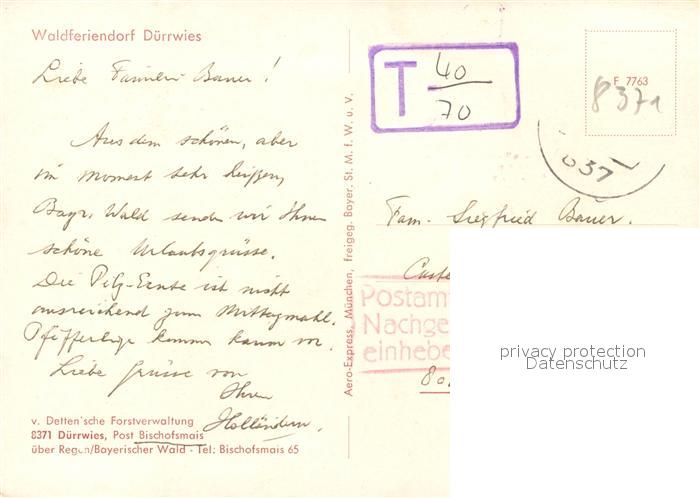 Waldferiendorf Dürrwies
Liebe Familie Bauer!
Aus dem schönen, aber
im Moment sehr heißen,
Bayr. Wald senden wir Ihnen
schöne Urlaubsgrüsse.
Die Pilz-Ernte ist nicht
ausreichend zum Mittagmahl.
Pfifferlinge kommen kaum vor.
Liebe Grüsse von
Ihren
Holländern.
v. Detten'sche Forstverwaltung
8371 Dürrwies, Post Bischofsmais
über Regen/Bayerischer Wald - Tel: Bischofsmais 65
Aero-Express, München, freigeg. Bayer. St. M. f. W. u. V.
T 40
70
F 7763
8371
837
Fam. Siegfried Bauer.
Caste
Postamt
Nachge
einhebe
80
privacy protection
Datenschutz